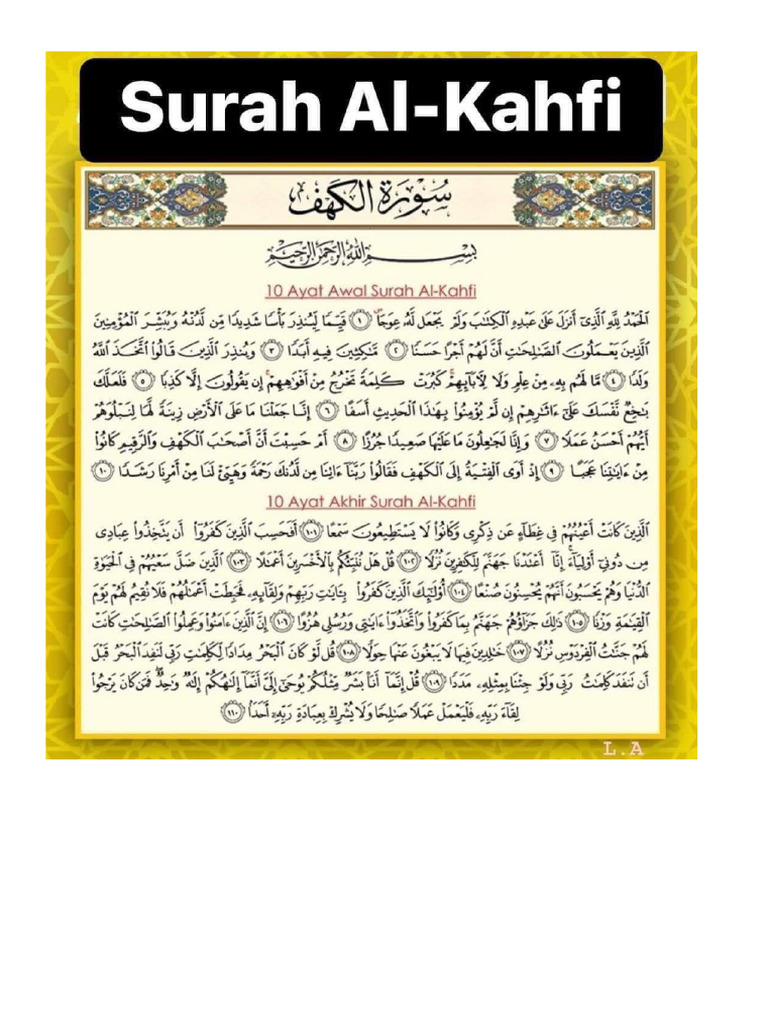 Surah Al-Kahfi
سُورَةُ الكَهْفِ
بِسْمِ اللَّهِ الرَّحْمَٰنِ الرَّحِيمِ
10 Ayat Awal Surah Al-Kahfi
الْحَمْدُ لِلَّهِ الَّذِي أَنزَلَ عَلَىٰ عَبْدِهِ الْكِتَابَ وَلَمْ يَجْعَل لَّهُ عِوَجًا ۜ ﴿١﴾ قَيِّمًا لِّيُنذِرَ بَأْسًا شَدِيدًا مِّن لَّدُنْهُ وَيُبَشِّرَ الْمُؤْمِنِينَ
الَّذِينَ يَعْمَلُونَ الصَّالِحَاتِ أَنَّ لَهُمْ أَجْرًا حَسَنًا ﴿٢﴾ مَّاكِثِينَ فِيهِ أَبَدًا ﴿٣﴾ وَيُنذِرَ الَّذِينَ قَالُوا اتَّخَذَ اللَّهُ
وَلَدًا ﴿٤﴾ مَّا لَهُم بِهِ مِنْ عِلْمٍ وَلَا لِآبَائِهِمْ ۚ كَبُرَتْ كَلِمَةً تَخْرُجُ مِنْ أَفْوَاهِهِمْ ۚ إِن يَقُولُونَ إِلَّا كَذِبًا ﴿٥﴾ فَلَعَلَّكَ
بَاخِعٌ نَّفْسَكَ عَلَىٰ آثَارِهِمْ إِن لَّمْ يُؤْمِنُوا بِهَٰذَا الْحَدِيثِ أَسَفًا ﴿٦﴾ إِنَّا جَعَلْنَا مَا عَلَى الْأَرْضِ زِينَةً لَّهَا لِنَبْلُوَهُمْ
أَيُّهُمْ أَحْسَنُ عَمَلًا ﴿٧﴾ وَإِنَّا لَجَاعِلُونَ مَا عَلَيْهَا صَعِيدًا جُرُزًا ﴿٨﴾ أَمْ حَسِبْتَ أَنَّ أَصْحَابَ الْكَهْفِ وَالرَّقِيمِ كَانُوا
مِنْ آيَاتِنَا عَجَبًا ﴿٩﴾ إِذْ أَوَى الْفِتْيَةُ إِلَى الْكَهْفِ فَقَالُوا رَبَّنَا آتِنَا مِن لَّدُنكَ رَحْمَةً وَهَيِّئْ لَنَا مِنْ أَمْرِنَا رَشَدًا ﴿١٠﴾
10 Ayat Akhir Surah Al-Kahfi
الَّذِينَ كَانَتْ أَعْيُنُهُمْ فِي غِطَاءٍ عَن ذِكْرِي وَكَانُوا لَا يَسْتَطِيعُونَ سَمْعًا ﴿١٠١﴾ أَفَحَسِبَ الَّذِينَ كَفَرُوا أَن يَتَّخِذُوا عِبَادِي
مِن دُونِي أَوْلِيَاءَ ۚ إِنَّا أَعْتَدْنَا جَهَنَّمَ لِلْكَافِرِينَ نُزُلًا ﴿١٠٢﴾ قُلْ هَلْ نُنَبِّئُكُم بِالْأَخْسَرِينَ أَعْمَالًا ﴿١٠٣﴾ الَّذِينَ ضَلَّ سَعْيُهُمْ فِي الْحَيَاةِ
الدُّنْيَا وَهُمْ يَحْسَبُونَ أَنَّهُمْ يُحْسِنُونَ صُنْعًا ﴿١٠٤﴾ أُولَٰئِكَ الَّذِينَ كَفَرُوا بِآيَاتِ رَبِّهِمْ وَلِقَائِهِ فَحَبِطَتْ أَعْمَالُهُمْ فَلَا نُقِيمُ لَهُمْ يَوْمَ
الْقِيَامَةِ وَزْنًا ﴿١٠٥﴾ ذَٰلِكَ جَزَاؤُهُمْ جَهَنَّمُ بِمَا كَفَرُوا وَاتَّخَذُوا آيَاتِي وَرُسُلِي هُزُوًا ﴿١٠٦﴾ إِنَّ الَّذِينَ آمَنُوا وَعَمِلُوا الصَّالِحَاتِ كَانَتْ
لَهُمْ جَنَّاتُ الْفِرْدَوْسِ نُزُلًا ﴿١٠٧﴾ خَالِدِينَ فِيهَا لَا يَبْغُونَ عَنْهَا حِوَلًا ﴿١٠٨﴾ قُل لَّوْ كَانَ الْبَحْرُ مِدَادًا لِّكَلِمَاتِ رَبِّي لَنَفِدَ الْبَحْرُ قَبْلَ
أَن تَنفَدَ كَلِمَاتُ رَبِّي وَلَوْ جِئْنَا بِمِثْلِهِ مَدَدًا ﴿١٠٩﴾ قُلْ إِنَّمَا أَنَا بَشَرٌ مِّثْلُكُمْ يُوحَىٰ إِلَيَّ أَنَّمَا إِلَٰهُكُمْ إِلَٰهٌ وَاحِدٌ ۖ فَمَن كَانَ يَرْجُوا
لِقَاءَ رَبِّهِ فَلْيَعْمَلْ عَمَلًا صَالِحًا وَلَا يُشْرِكْ بِعِبَادَةِ رَبِّهِ أَحَدًا ﴿١١٠﴾
L.A